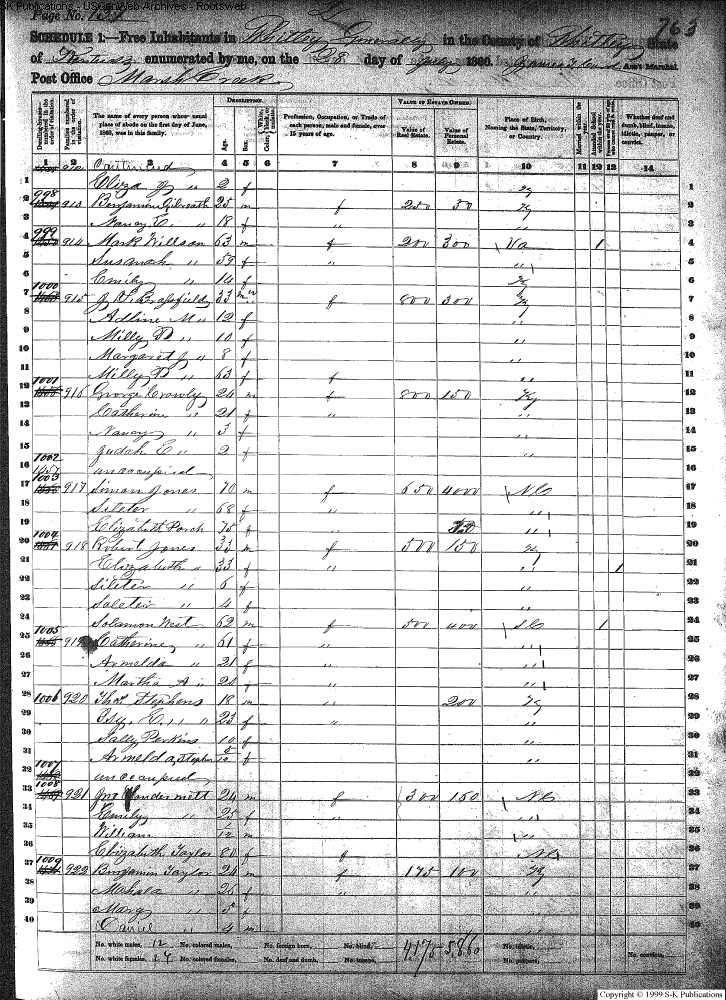 S-K Publications - USGenWeb Archives - Rootsweb
Page No. 137
763
SCHEDULE 1.—Free Inhabitants in Whitley County in the County of Whitley State
of Kentucky enumerated by me, on the 28 day of July 1860. Ass't Marshal.
Post Office Marsh Creek
Dwelling-houses—numbered in the order of visitation.
Families numbered in the order of visitation.
The name of every person whose usual place of abode on the first day of June, 1860, was in this family.
DESCRIPTION.
Age.
Sex.
Color, White, black, or mulatto.
Profession, Occupation, or Trade of each person, male and female, over 15 years of age.
VALUE OF ESTATE OWNED.
Value of Real Estate.
Value of Personal Estate.
Place of Birth, Naming the State, Territory, or Country.
Married within the year.
Attended School within the year.
Whether deaf and dumb, blind, insane, idiotic, pauper, or convict.
1 2 3 4 5 6 7 8 9 10 11 12 13 14
1 Eliza J " 2 f Ky 1
2 998 913 Benjamin Gilreath 25 m f 250 50 Ky 2
3 Nancy E. " 18 f " " 3
4 999 914 Mark Willson 63 m f 200 300 Va 1 4
5 Susanah " 59 f " " 5
6 Emily " 14 f Ky 6
7 1000 915 J. W. Brassfield 33 m f 800 300 Ky 7
8 Adline M " 12 f " 8
9 Milly D " 10 f " 9
10 Margaret J " 8 f " 10
11 Milly D " 63 f f " 11
12 1001 916 George Crowly 24 m f 800 150 Ky 12
13 Catherine " 21 f " " 13
14 Nancy " 3 f " 14
15 Judah E " 2 f " 15
16 1002 unoccupied 16
17 1003 917 Siman Jones 70 m f 650 4000 NC 17
18 Sileter " 68 f " " 18
19 Elizabeth Porch 75 f " " 19
20 1004 918 Robert Jones 33 m f 500 150 Ky 20
21 Elizabeth " 33 f " " 1 21
22 Sileter " 6 f " 22
23 Saleter " 4 f " 23
24 Solomon West 62 m f 500 400 SC 1 24
25 1005 919 Catherine " 61 f " " 25
26 Armelda " 21 f " 26
27 Martha A " 20 f " 27
28 1006 920 Thos Stephens 18 m " 200 Ky 28
29 " 23 f " " 29
30 Sally Perkins 10 f " 30
31 Armelda Stephens 5/12 f " 31
32 1007 unoccupied 32
33 1008 921 Jno Vandermett 24 m f 300 150 NC 33
34 Emily " 25 f " " 34
35 William 12 m " 35
36 Elizabeth Taylor 80 f f NC 36
37 1009 922 Benjamin Taylor 24 m f 175 100 Ky 37
38 Mahala " 26 f " " 38
39 Mary " 5 f " 39
40 " 4 m " 40
No. white males, 12 No. colored males, No. foreign born, No. blind, 4175 5,860 No. idiotic,
No. white females, No. colored females, No. deaf and dumb, No. insane, No. paupers, No. convicts,
Copyright © 1999 S-K Publications